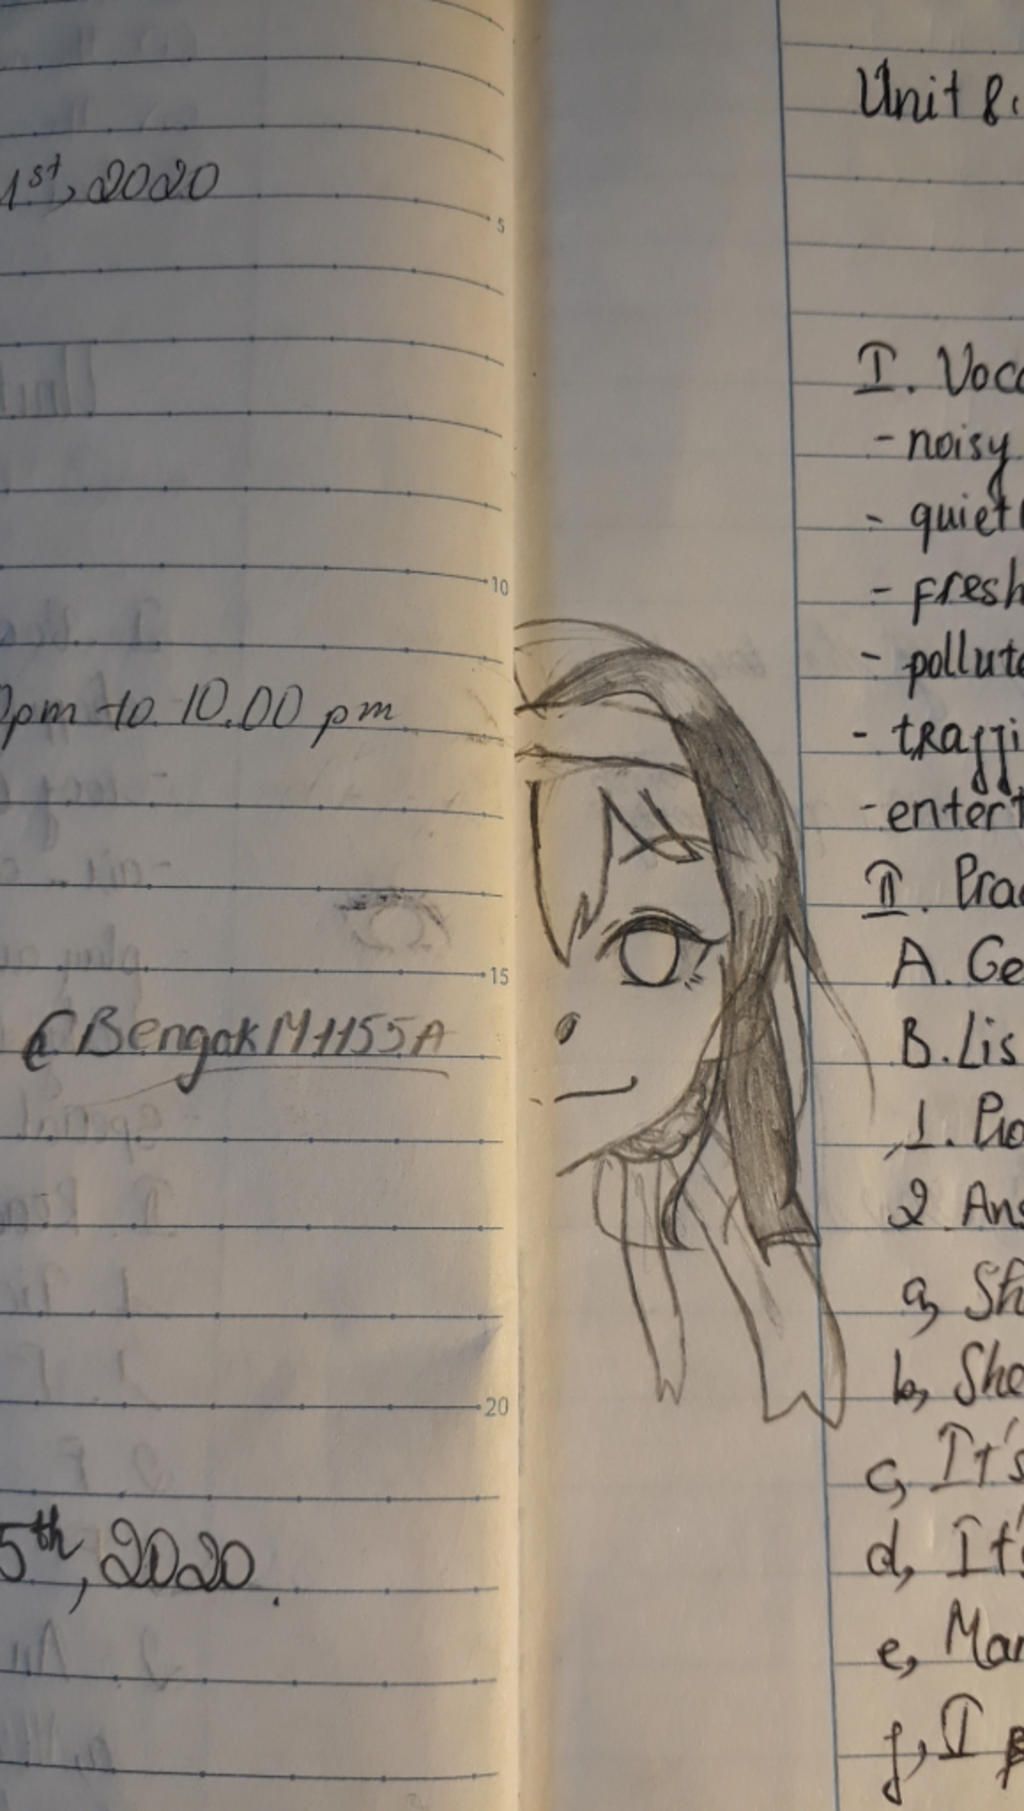 1st, 2020
5
10
pm to 10.00 pm
15
@BengokM1155A
20
5th, 2020.
Unit 8:
I. Voca
- noisy
- quiet
- fresh
- pollute
- traffi
- entert
II. Prac
A. Ge
B. Lis
1. Pro
2. Ans
a, Sh
b, She
c, It's
d, It's
e, Mar
f, I